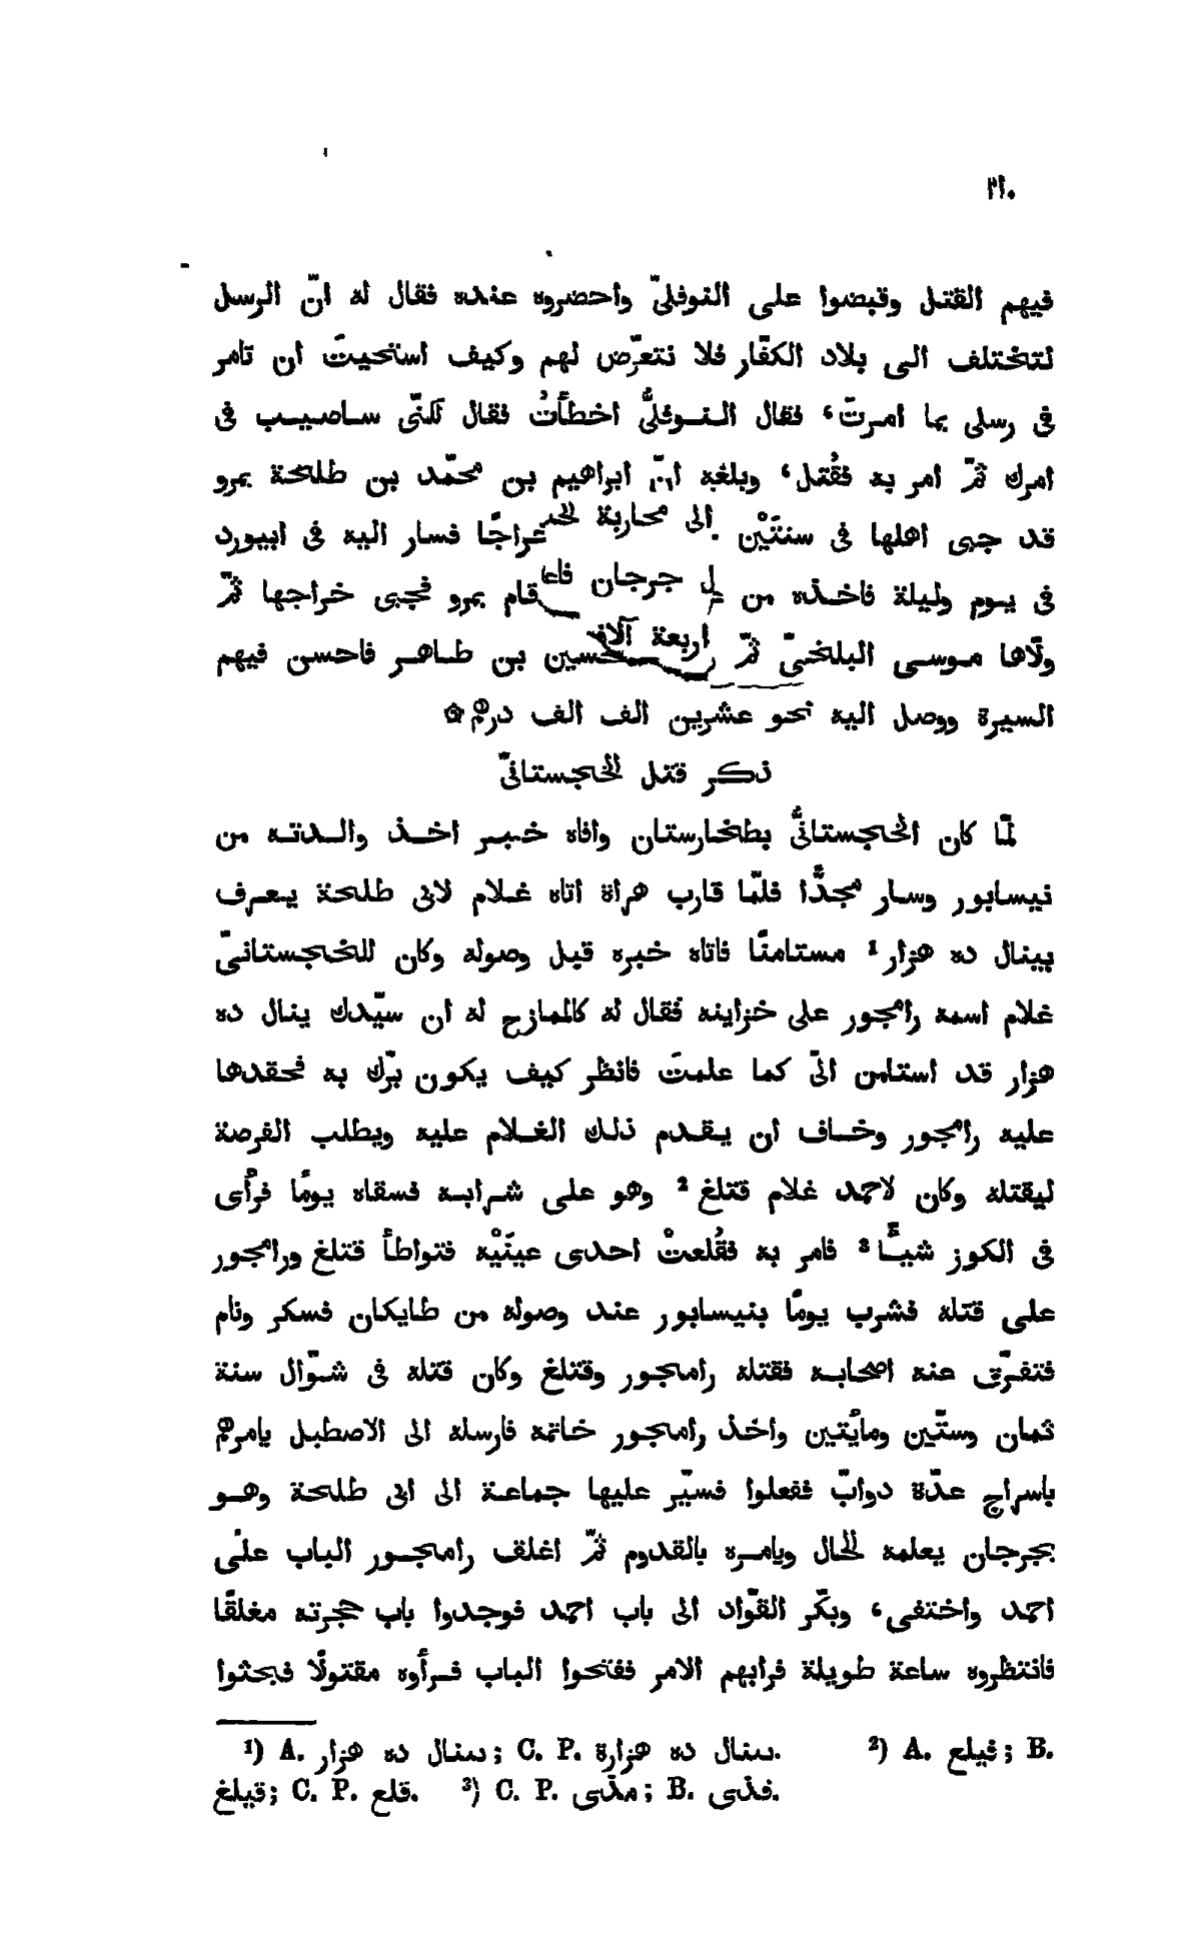 ٢١٠
فيهم القتل وقبضوا على النوفلىّ واحضروه عنده فقال له انّ الرسل
لتختلف الى بلاد الكفّار فلا نتعرّض لهم وكيف استحيتَ ان تامر
فى رسلى بما امرتَ، فقال النوفلىُّ اخطأتُ فقال لكنّى ساصيب فى
امرك ثمّ امر به فقُتل، وبلغه انّ ابراهيم بن محمّد بن طلحة بمرو
قد جبى اهلها فى سنتَيْن الى محاربة خراجًا فسار اليه فى ابيورد
فى يوم وليلة فاخذه من جرجان قام بمرو فجبى خراجها ثمّ
ولّاها موسى البلخىّ ثمّ اربعة آلاف حسين بن طاهر فاحسن فيهم
السيرة ووصل اليه نحو عشرين الف الف درهم ۞
ذكر قتل الخجستانىّ
لمّا كان الخجستانىُّ بطخارستان وافاه خبر اخذ والدته من
نيسابور وسار مجدًّا فلمّا قارب هراة اتاه غلام لابى طلحة يعرف
بينال ده هزار 1 مستامنًا فاتاه خبره قبل وصوله وكان للخجستانىّ
غلام اسمه رامجور على خزاينه فقال له كالمازح له ان سيّدك ينال ده
هزار قد استامن الىّ كما علمتَ فانظر كيف يكون برّك به فحقدها
عليه رامجور وخاف ان يقدم ذلك الغلام عليه ويطلب الفرصة
ليقتله وكان لاحمد غلام قتلغ 2 وهو على شرابه فسقاه يومًا فرأى
فى الكوز شيئًا 3 فامر به فقُلعتْ احدى عينَيْه فتواطأ قتلغ ورامجور
على قتله فشرب يومًا بنيسابور عند وصوله من طايكان فسكر ونام
فتفرّق عنه اصحابه فقتله رامجور وقتلغ وكان قتله فى شوّال سنة
ثمان وستّين ومأيتين واخذ رامجور خاتمه فارسله الى الاصطبل يامرهم
باسراج عدّة دوابّ ففعلوا فسيّر عليها جماعة الى ابى طلحة وهو
بجرجان يعلمه الحال ويامره بالقدوم ثمّ اغلق رامجور الباب على
احمد واختفى، وبكّر القوّاد الى باب احمد فوجدوا باب حجرته مغلقًا
فانتظروه ساعة طويلة فرابهم الامر ففتحوا الباب فرأوه مقتولًا فبحثوا
1) A. سنال ده هزار; C. P. سنال ده هزارة. 2) A. فيلع; B.
قيبلغ; C. P. قلع. 3) C. P. مذى; B. فذى.